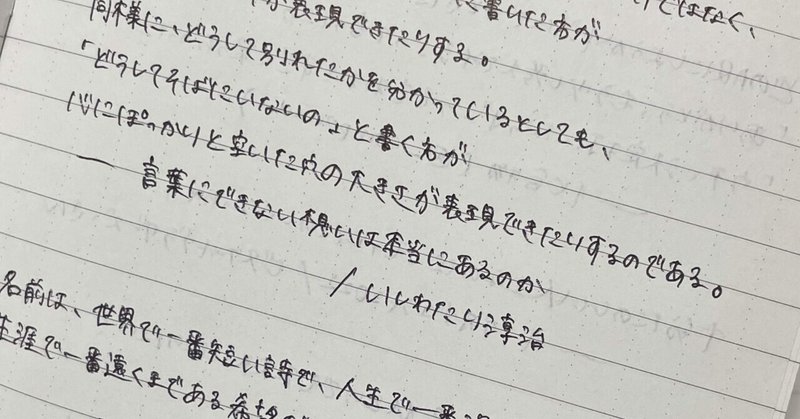 が表現できたりする。
に書いた方が
ではなく、
同様に、どうして別れたかを分かっているとしても、
「どうしてそばにいないの」と書く方が
心にぽっかりと空いた穴の大きさが表現できたりするのである。
― 言葉にできない想いは本当にあるのか
/いしわたり淳治
名前は、世界で一番短い詩で、人生で一番
生涯で一番遠くまである希望の